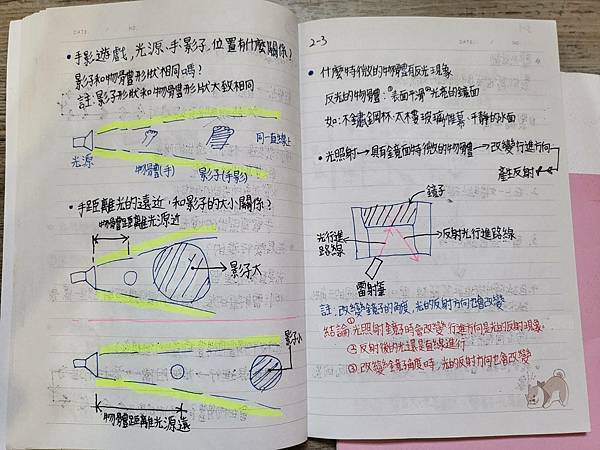 • 手影遊戲,光源、手、影子,位置有什麼關係?
影子和物體形狀相同嗎?
註:影子形狀和物體形狀大致相同
同一直線上
光源
物體(手)
影子(手影)
• 手距離光的遠近,和影子的大小關係?
物體距離光源近
影子大
影子小
物體距離光源遠
2-3
• 什麼特徵的物體有反光現象
反光的物體:表面平滑光亮的鏡面
如:不鏽鋼杯、太木婁玻璃帷幕、平靜的水面
• 光照射→具有鏡面特徵的物體→改變行進方向
產生反射
鏡子
光行進路線
反射光行進路線
雷射筆
註:改變鏡子的角度,光的反射方向也會改變
結論①光照射鏡子時會改變行進方向是光的反射現象
②反射後的光還是直線進行
③改變鏡子角度時,光的反射方向也會改變